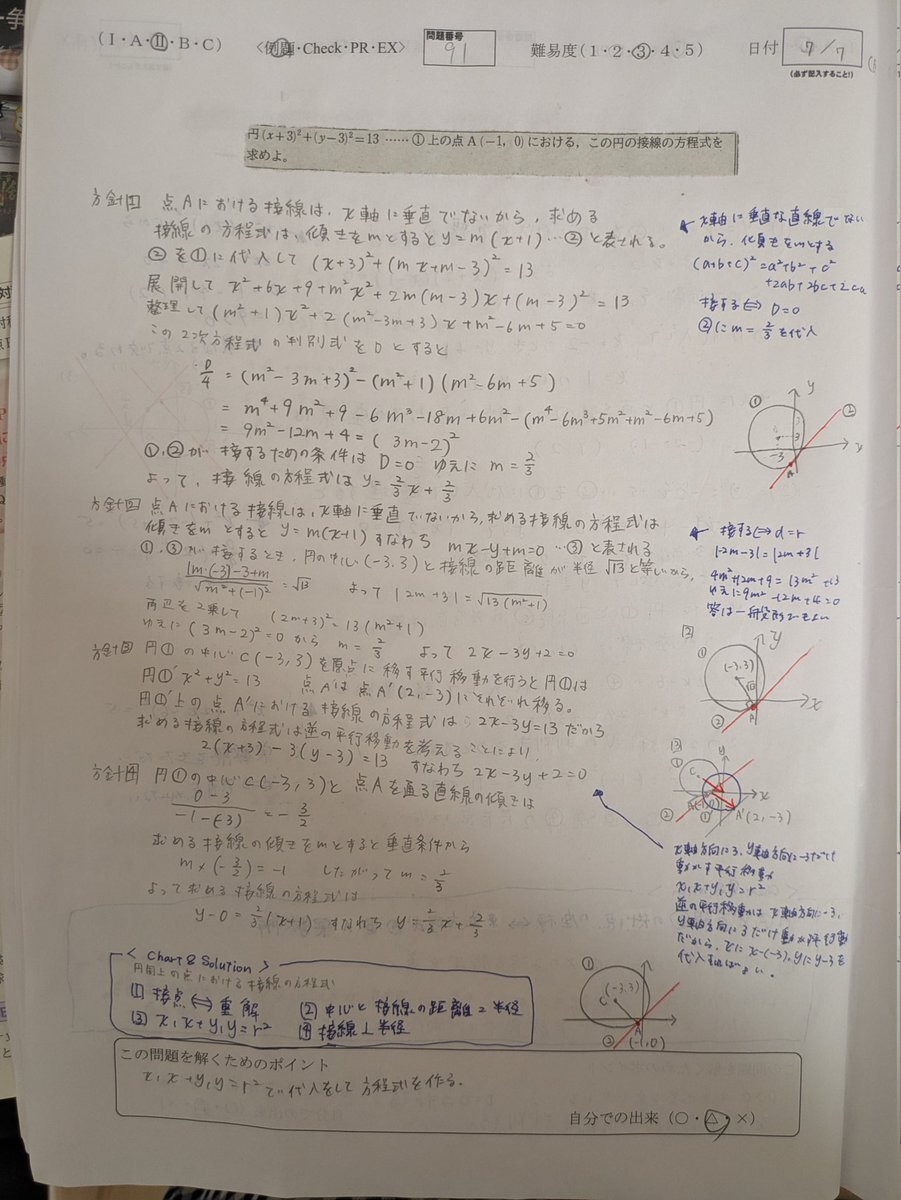 (I・A・II・B・C) <例題・Check・PR・EX> 問題番号 91 難易度(1・2・③・4・5) 日付 7/7
(必ず記入すること!)
円(x+3)²+(y−3)²=13 ……① 上の点 A(−1, 0) における,この円の接線の方程式を
求めよ。
方針1 点Aにおける接線は、x軸に垂直でないから、求める
接線の方程式は、傾きをmとするとy=m(x+1)…②と表される。
②を①に代入して (x+3)²+(mx+m−3)²=13
展開して x²+6x+9+m²x²+2m(m−3)x+(m−3)²=13
整理して(m²+1)x²+2(m²−3m+3)x+m²−6m+5=0
この2次方程式の判別式をDとすると
D/4=(m²−3m+3)²−(m²+1)(m²−6m+5)
=m⁴+9m²+9−6m³−18m+6m²−(m⁴−6m³+5m²+m²−6m+5)
=9m²−12m+4=(3m−2)²
①,②が接するための条件は D=0 ゆえに m=2/3
よって、接線の方程式は y=2/3x+2/3
x軸に垂直な直線でない
から、傾きをmとする
(a+b+c)²=a²+b²+c²
+2ab+2bc+2ca
接する⇔D=0
②にm=2/3を代入
① y ②
3
−3 x
A
方針2 点Aにおける接線は、x軸に垂直でないから、求める接線の方程式は
傾きをmとすると y=m(x+1) すなわち mx−y+m=0 …③と表される
①,③が接するとき、円の中心(−3,3)と接線の距離が半径√13と等しいから、
|m・(−3)−3+m|/√m²+(−1)²=√13 よって |2m+3|=√13(m²+1)
両辺を2乗して (2m+3)²=13(m²+1)
ゆえに (3m−2)²=0 から m=2/3 よって 2x−3y+2=0
接する⇔d=r
|−2m−3|=|2m+3|
4m²+12m+9=13m²+13
ゆえに9m²−12m+4=0
答は一般形でもよい
[2] y
① (−3,3)
√13
② A x
方針3 円①の中心C(−3,3)を原点に移す平行移動を行うと円①は
円①′x²+y²=13 点Aは点A′(2,−3)にそれぞれ移る。
円①′上の点A′における接線の方程式は 2x−3y=13だから
求める接線の方程式は逆の平行移動を考えることにより、
2(x+3)−3(y−3)=13 すなわち 2x−3y+2=0
[3] y
① C
x
② ①′ A′(2,−3)
x軸方向に3、y軸方向に−3だけ
動かす平行移動
x₁x+y₁y=r²
逆の平行移動は x軸方向に−3,
y軸方向に3だけ動かす平行移動
だから、xにx−(−3),yにy−3を
代入すればよい。
方針4 円①の中心C(−3,3)と点Aを通る直線の傾きは
0−3/−1−(−3)=−3/2
求める接線の傾きをmとすると垂直条件から
m×(−3/2)=−1 したがって m=2/3
よって求める接線の方程式は
y−0=2/3(x+1) すなわち y=2/3x+2/3
① (−3,3)
C
② A
(−1,0)
< Chart & Solution >
円周上の点における接線の方程式
[1] 接点⇔重解 [2] 中心と接線の距離=半径
[3] x₁x+y₁y=r² [4] 接線⊥半径
この問題を解くためのポイント
x₁x+y₁y=r²で代入をして方程式を作る。
自分での出来(○・△・×)